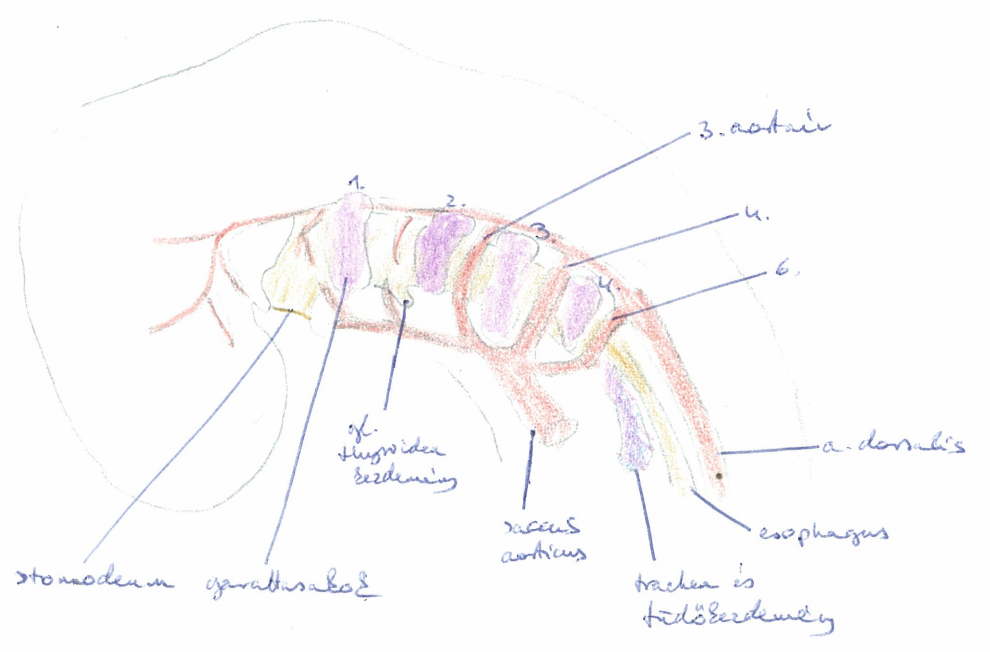 3. aortaív
1.
2.
4.
3.
6.
4.
gl.
thyroidea
kezdemény
a. dorsalis
saccus
aorticus
esophagus
stomodeum garattasakok
trachea és
tüdőkezdemény